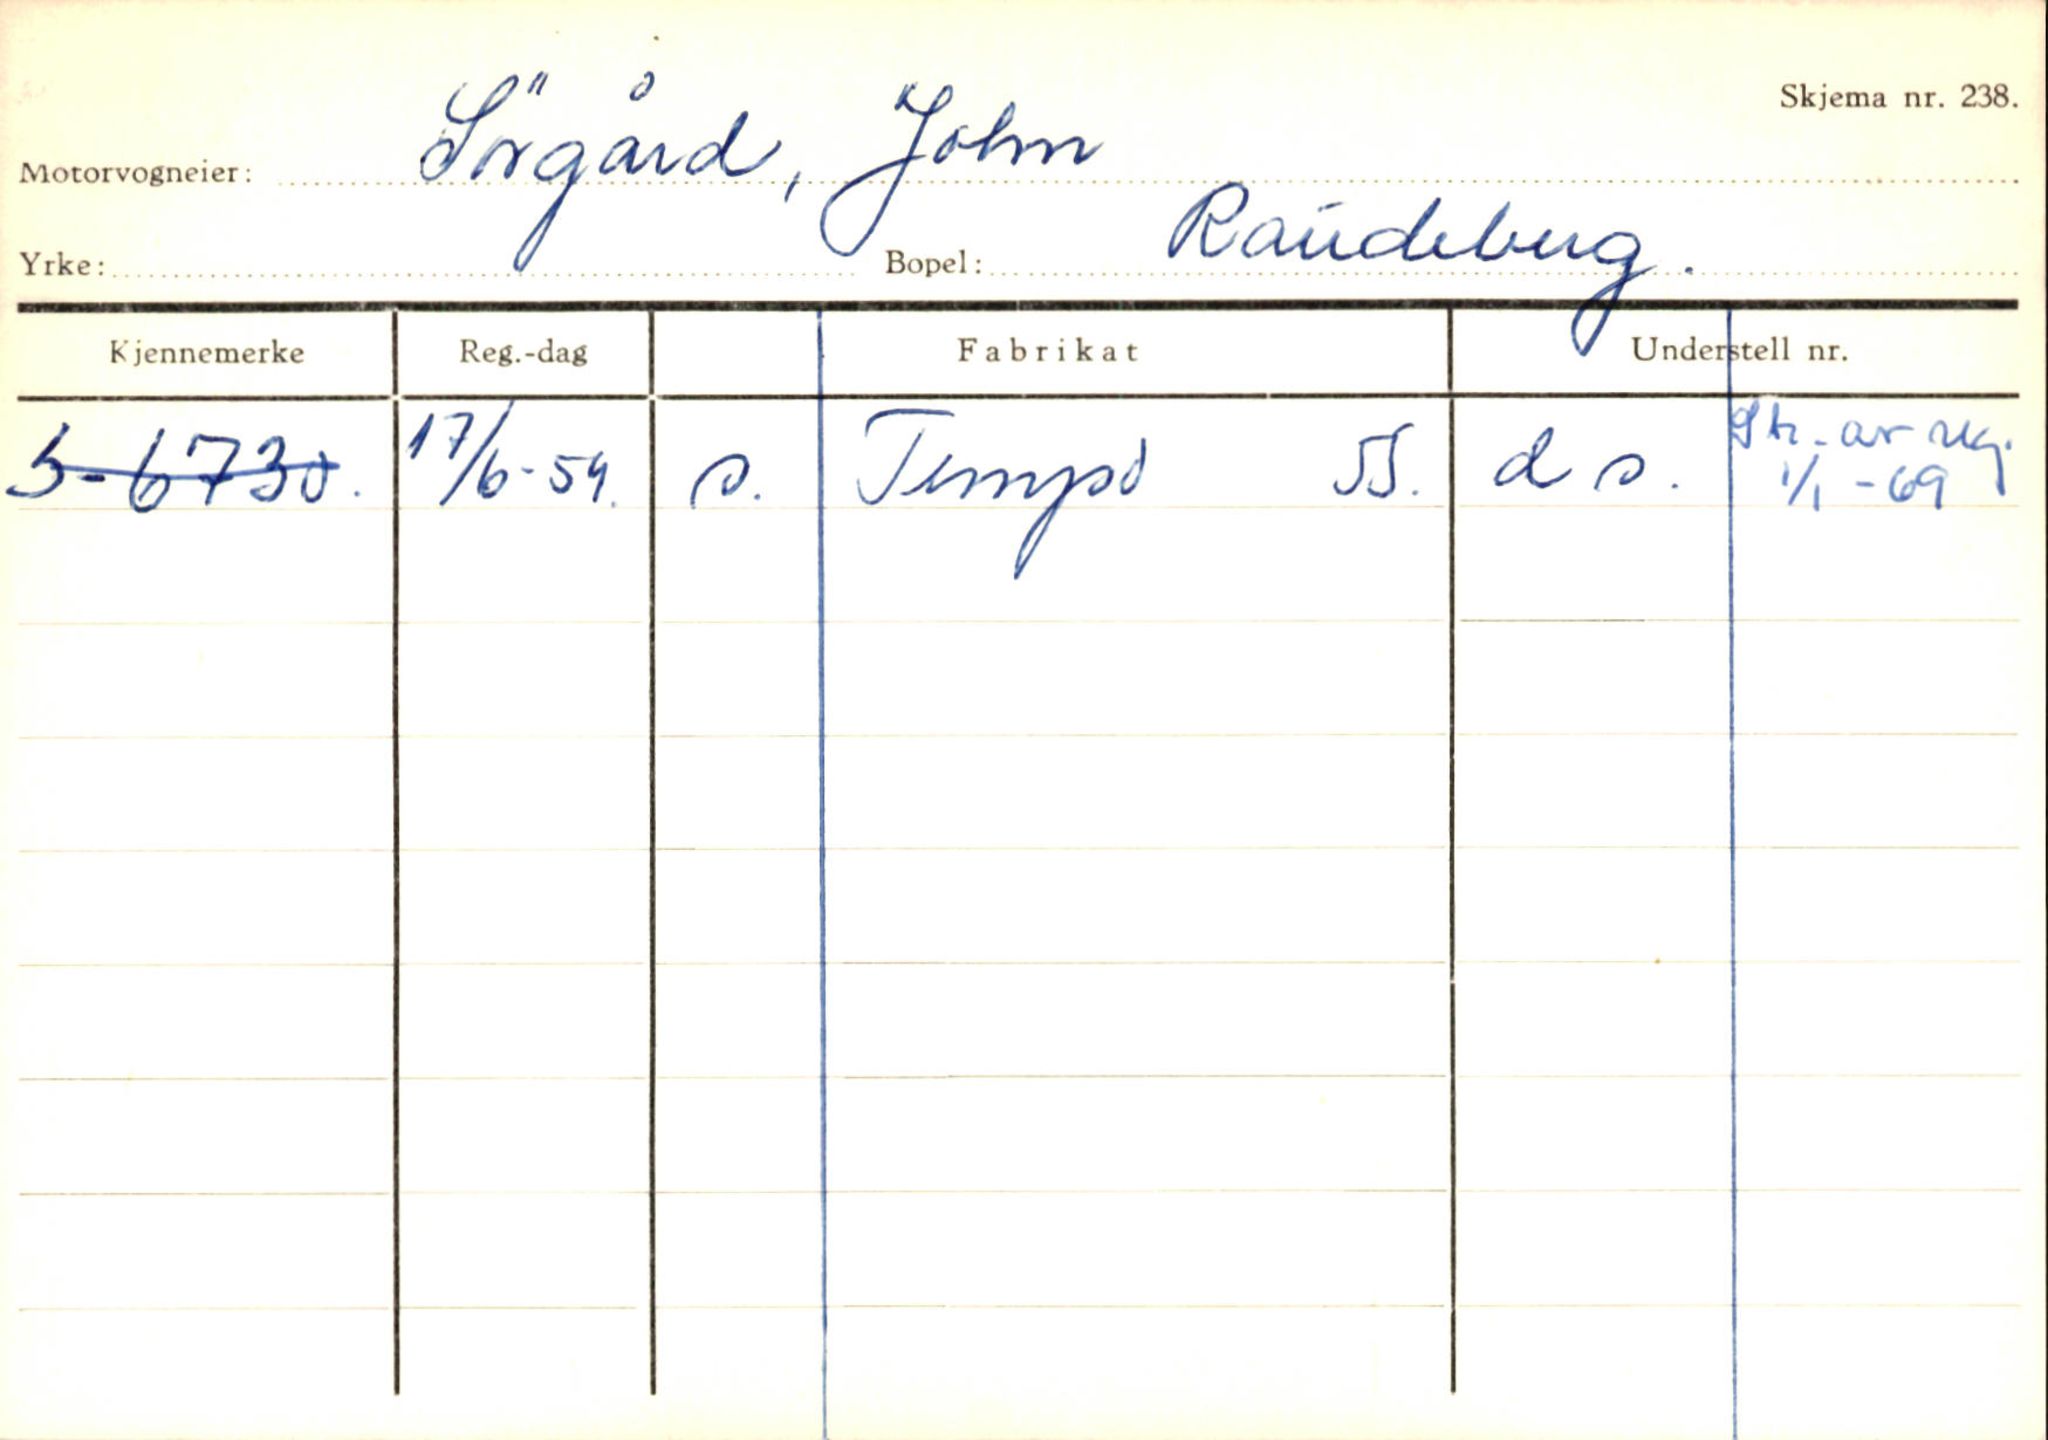 Skjema nr. 238.
Motorvogneier: Sörgård, John
Yrke: Bopel: Raudeberg.
Kjennemerke Reg.-dag Fabrikat Understell nr.
S-6730. 17/6-54. s. Tempo 55. d s. Str. av reg.
1/1 -69